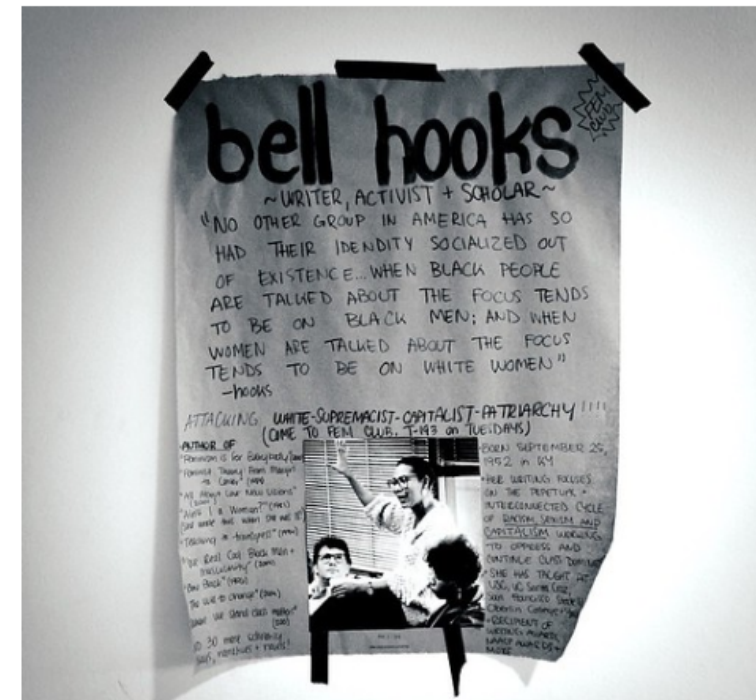 bell hooks
FEM
CLUB
~WRITER, ACTIVIST + SCHOLAR~
"NO OTHER GROUP IN AMERICA HAS SO
HAD THEIR IDENDITY SOCIALIZED OUT
OF EXISTENCE... WHEN BLACK PEOPLE
ARE TALKED ABOUT THE FOCUS TENDS
TO BE ON BLACK MEN; AND WHEN
WOMEN ARE TALKED ABOUT THE FOCUS
TENDS TO BE ON WHITE WOMEN"
-hooks
ATTACKING WHITE-SUPREMACIST-CAPITALIST-PATRIARCHY!!!!
(COME TO FEM CLUB. T-193 on TUESDAYS)
AUTHOR OF
"Feminism is for Everybody"
"Feminist Theory: From Margin
to Center"
"All About Love New Visions"
"Ain't I a Woman?"
"Teaching to transgress"
"We Real Cool Black Men +
Masculinity"
"Bone Black"
"The will to change"
"Where We Stand class matters"
30 more
BORN SEPTEMBER 25,
1952 in KY
•HER WRITING FOCUSES
ON THE PERPETUAL +
INTERCONNECTED CYCLE
OF RACISM SEXISM AND
CAPITALISM WORKING
TO OPPRESS AND
CONTINUE CLASS
•SHE HAS TAUGHT AT
USC, UC Santa Cruz,
San Francisco State
Oberlin College
-RECIPIENT OF
WRITING AWARDS,
NAACP AWARDS +
MORE